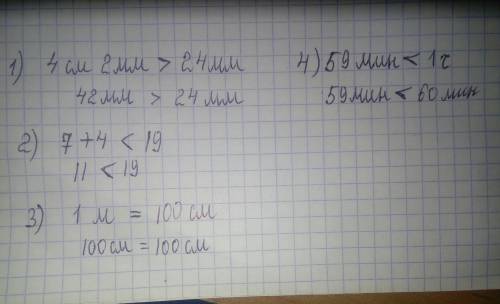 1) 4 см 2мм > 24мм
42мм > 24 мм
2) 7 + 4 < 19
11 < 19
3) 1 м = 100 см
100см = 100 см
4) 59 мин < 1 ч
59мин < 60 мин